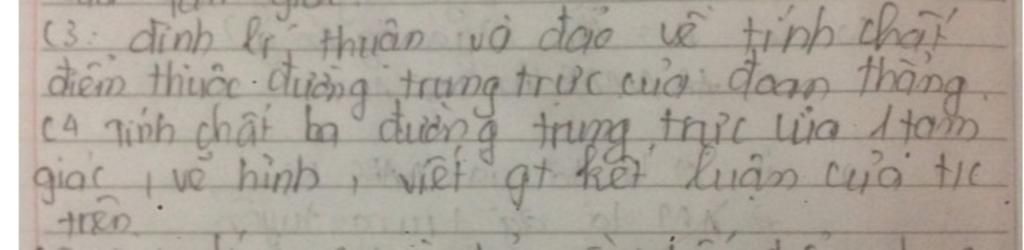 C3: định lí thuận và đảo về tính chất
điểm thuộc đường trung trực của đoạn thẳng.
C4 Tính chất ba đường trung trực của 1 tam
giác, vẽ hình, viết gt kết luận của t/c
trên.